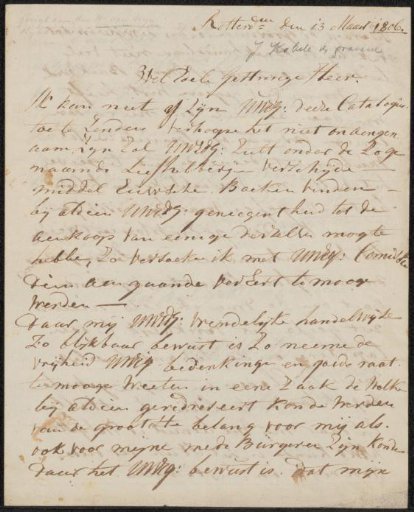 Rotterdm den 13 Maart 1806.
Wel Edele Gestrenge Heer.
Ik kan niet af Zijn UWEg: deeze Catalogus
toe te Zenden verhoope het niet onaangen
aam Zijn Zal UWEg: Zult onder de Zoge
naamde Liefhebberije verscheyde
middel Eeuwsche Boeken vinden
bij aldien UWEg: genegentheid tot de
aankoop van eenige derzelver mogte
hebbe, Zo verzoeke ik met UWEg: Comissien
dien aan gaande vereert te moge
werden —
Daar mij UWEg: vrendelijke handelwijze
Zo blijkbaar bewust is Zo neeme de
vrijheid UWEg bedenkinge en goede raat
te mooge weeten in eene Zaak de Welke
bij aldien geredresseert konde werden
van de grootste belang voor mij als
ook voor mijne mede Burgeren Zijn konde
Daar het UWEg: bewust is dat mijn